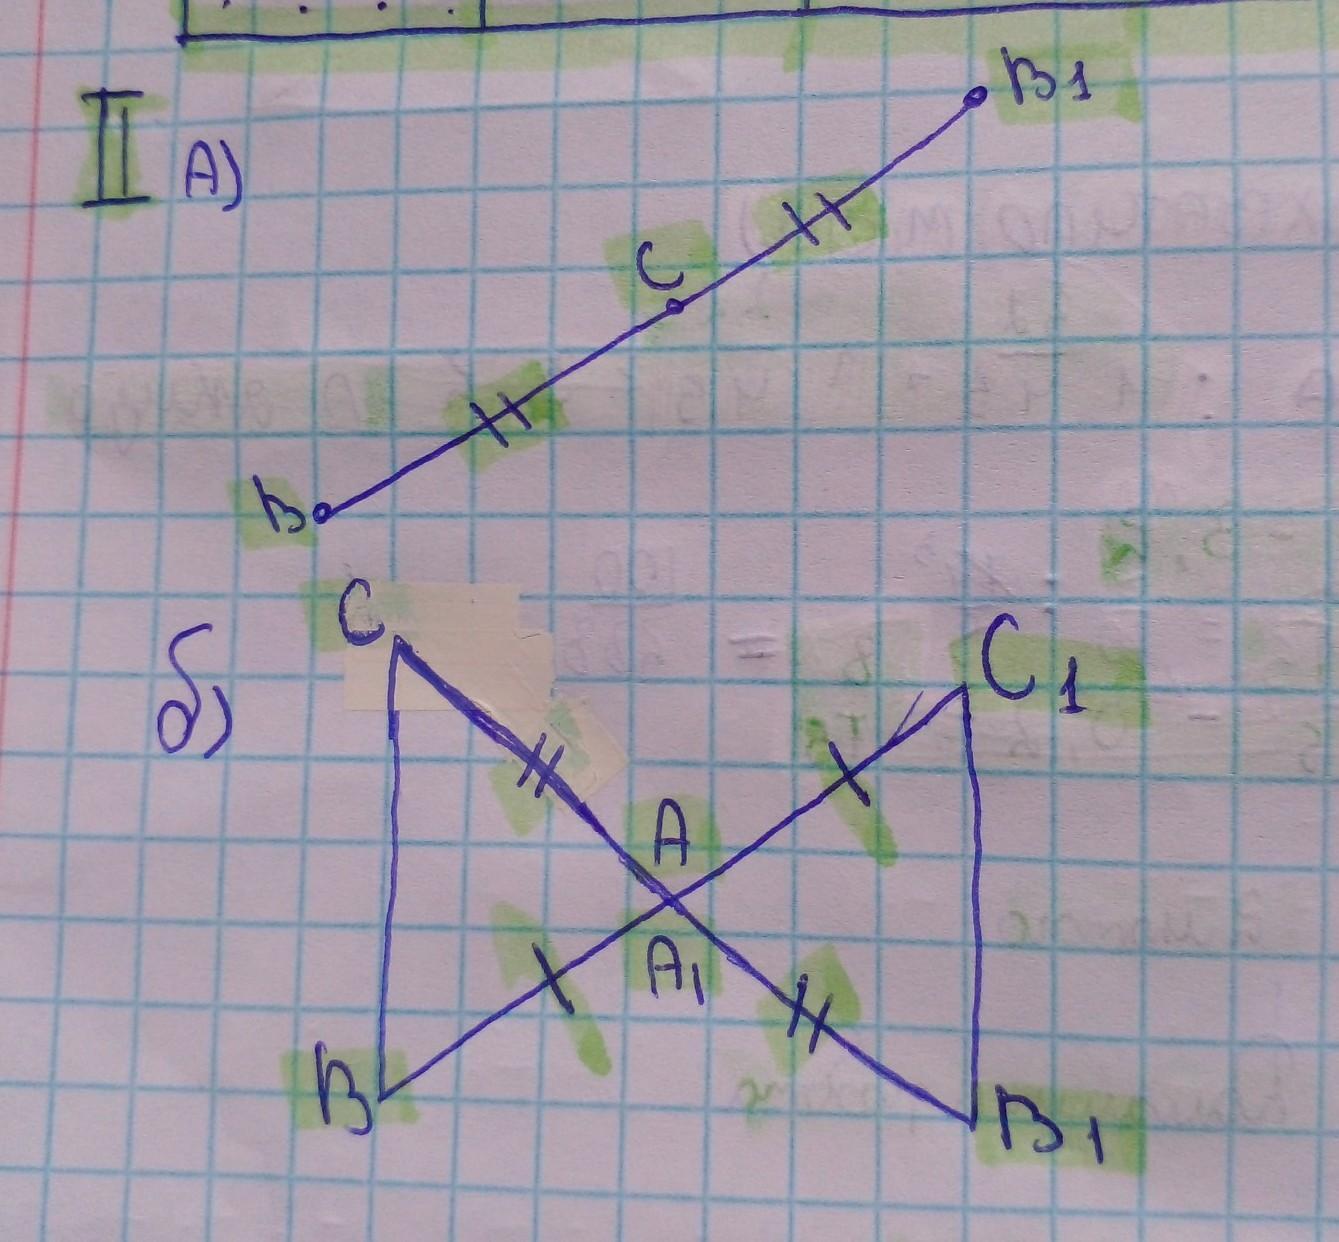 II А) B1
C
B
б) C C1
A
A1
B B1